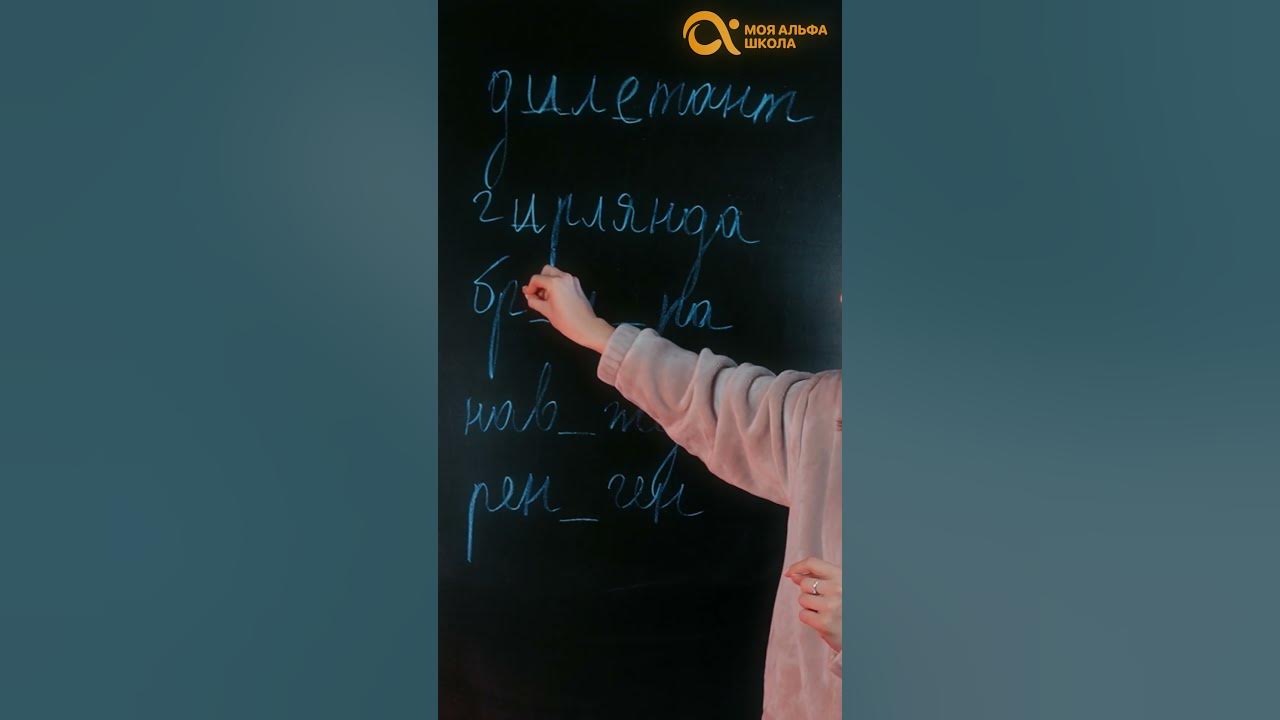 МОЯ АЛЬФА
ШКОЛА
дилетант
гирлянда
нав_
рен_ген